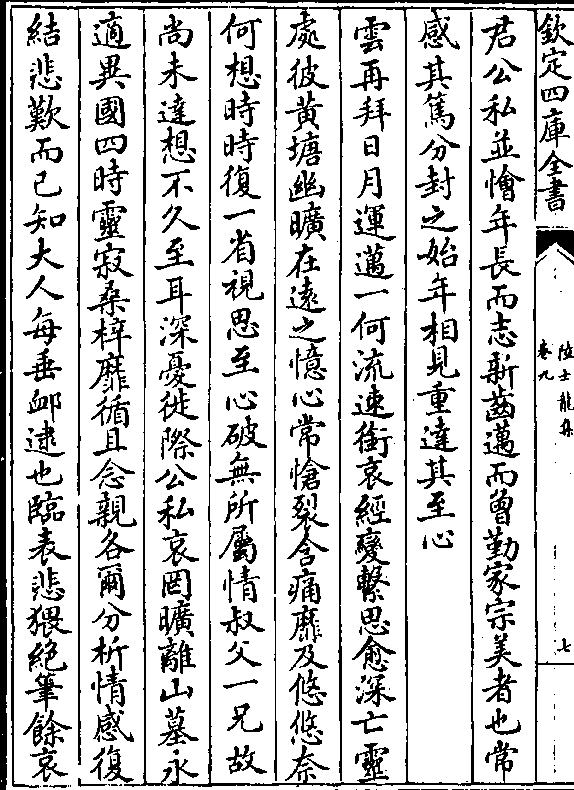 欽定四庫全書
陸士龍集
卷九
七
君公私並懀年長而志新齒邁而曾勤家宗美者也常
感其篤分封之始年相見重達其至心
雲再拜日月運邁一何流速銜哀經變繫思愈深亡靈
處彼黄塘幽曠在遠之憶心常愴裂含痛靡及悠悠奈
何想時時復一省視思至心破無所屬情叔父一兄故
尚未達想不久至耳深憂徙際公私哀罔曠離山墓永
適異國四時靈寂桑梓靡循且念親各爾分析情感復
結悲歎而已知大人每垂䘏逮也臨表悲猥絕筆餘哀